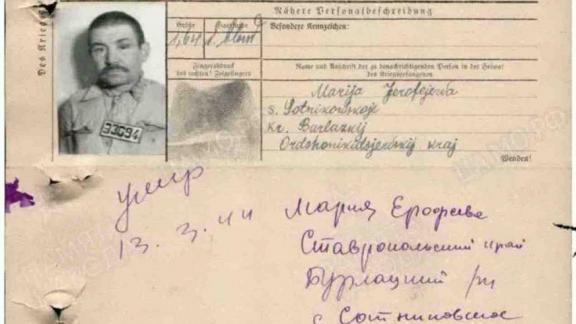 Des Krieg
Nähere Personalbeschreibung
Größe
Haarfarbe
Besondere Kennzeichen:
1,64
blond
Fingerabdruck
des rechten Zeigefingers
Name und Anschrift der zu benachrichtigenden Person in der Heimat
des Kriegsgefangenen
33694
Marija Jerofejewa
s. Sotnikowskoje
Kr. Burlazkij
Ordshonikidsjewskij kraj
Wenden!
умер
13.3.44
Мария Ерофеева
Ставропольский край
Бурлацкий
с Сотниковское